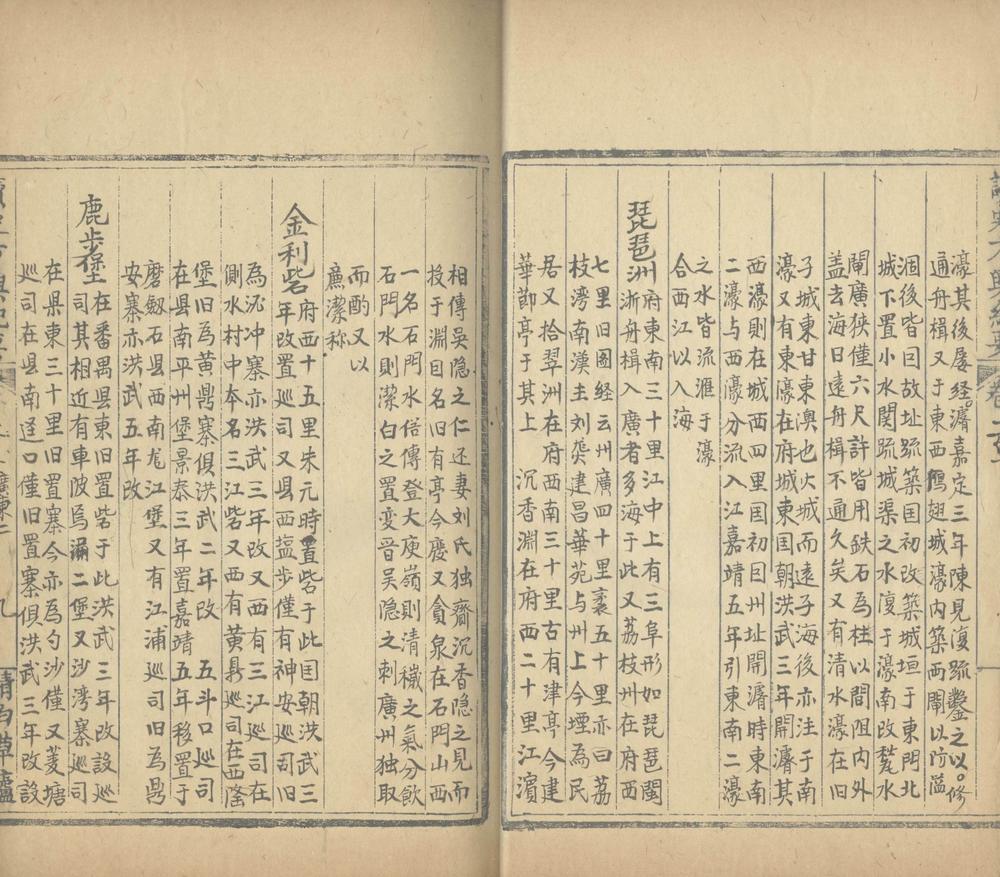 濠其後屡経濬嘉定三年陳見復䟽鑿之以修
通舟楫又于東西鴈翅城濠内築两閘以防溢
涸後皆曰故址䟽築囯初改築城垣于東門北
城下置小水関䟽城渠之水復于濠南改甃水
閘廣狭僅六尺許皆用鉄石為柱以間阻内外
盖去海日遠舟楫不通久矣又有清水濠在旧
子城東甘東澳也火城而遠子海後亦注于南
濠又有東濠在府城東囯朝洪武三年開濬其
西濠則在城西四里囯初因州址開濬時東南
二濠与西濠分流入江嘉靖五年引東南二濠
之水皆流滙于濠
合西江以入海
琵琶洲
府東南三十里江中上有三阜形如琵琶閩
浙舟楫入廣者多海于此又荔枝州在府西
七里旧圖経云州廣四十里袤五十里亦曰荔
枝湾南漢主刘龑建昌華苑与州上今堙為民
居又拾翠洲在府西南三十里古有津亭今建
華莭亭于其上 沉香淵在府西二十里江濵
相傳吴隐之仁还妻刘氏独齎沉香隐之見而
投于淵因名旧有亭今廢又貪泉在石門山西
一名石門水俗傳登大庾嶺則清穢之氣分飲
石門水則潔白之置变晉吴隐之刺廣州独取
而酌又以
廉潔称
金利砦
府西十五里宋元時置砦于此囯朝洪武三
年改置巡司又县西塩步僅有神安巡司旧
為沉冲寨亦洪武三年改又西有三江巡司在
側水村中本名三江砦又西有黄鼎巡司在西隆
堡旧為黄鼎寨俱洪武二年改 五斗口巡司
在县南平州堡景泰三年置嘉靖五年移置于
磨劔石县西南龙江堡又有江浦巡司旧為鼎
安寨亦洪武五年改
鹿步堡
在番禺县東旧置砦于此洪武三年改設巡
司其相近有車陂烏涌二堡又沙湾寨巡司
在県東三十里旧置寨今亦為勺沙僅又茭塘
巡司在县南迳口僅旧置寨俱洪武三年改設
廣東二
九
清白草廬